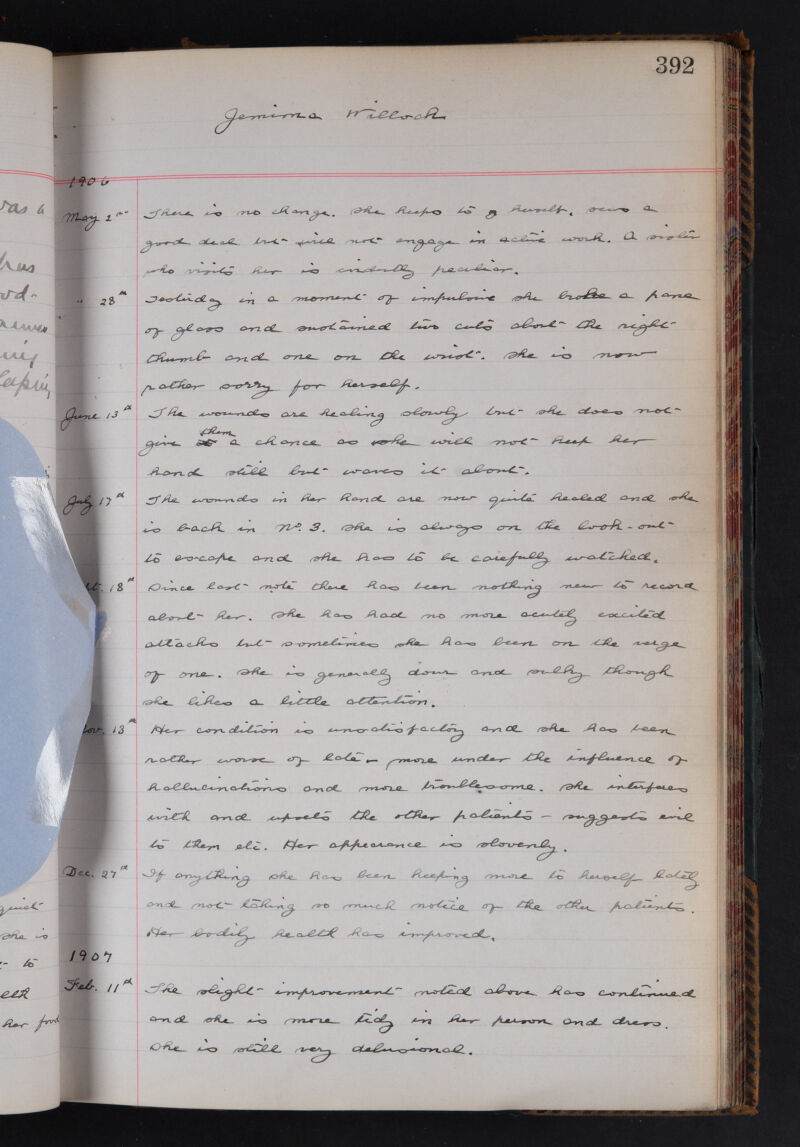 392
Jemima Willock
1906
May 2nd There is no change. She keeps to herself, sews a
good deal but will not engage in active work. A sister
who visits her is evidently peculiar.
" 28th Yesterday in a moment of impulsive she broke a pane
of glass and sustained two cuts about the right
thumb and one on the wrist. She is now
rather sorry for herself.
June 13th The wounds are healing slowly but she does not
give them a chance as she will not keep her
hand still but waves it about.
July 17th The wounds in her hand are now quite healed and she
is back in No. 3. She is always on the look-out
to escape and she has to be carefully watched.
t. 18th Since last note there has been nothing new to record
about her. She has had no more acutely excited
attacks but sometimes she has been on the verge
of one. She is generally dour and sulky though
she likes a little attention.
Nov. 13th Her condition is unsatisfactory and she has been
rather worse of late - more under the influence of
hallucinations and more troublesome. She interferes
with and upsets the other patients - suggests evil
to them etc. Her appearance is slovenly.
Dec. 27th If anything she has been keeping more to herself lately
and not taking so much notice of the other patients.
Her bodily health has improved.
1907
Feb. 11th The slight improvement noted above has continued
and she is more tidy in her person and dress.
She is still very delusional.
was a
quiet
she is
to
her food